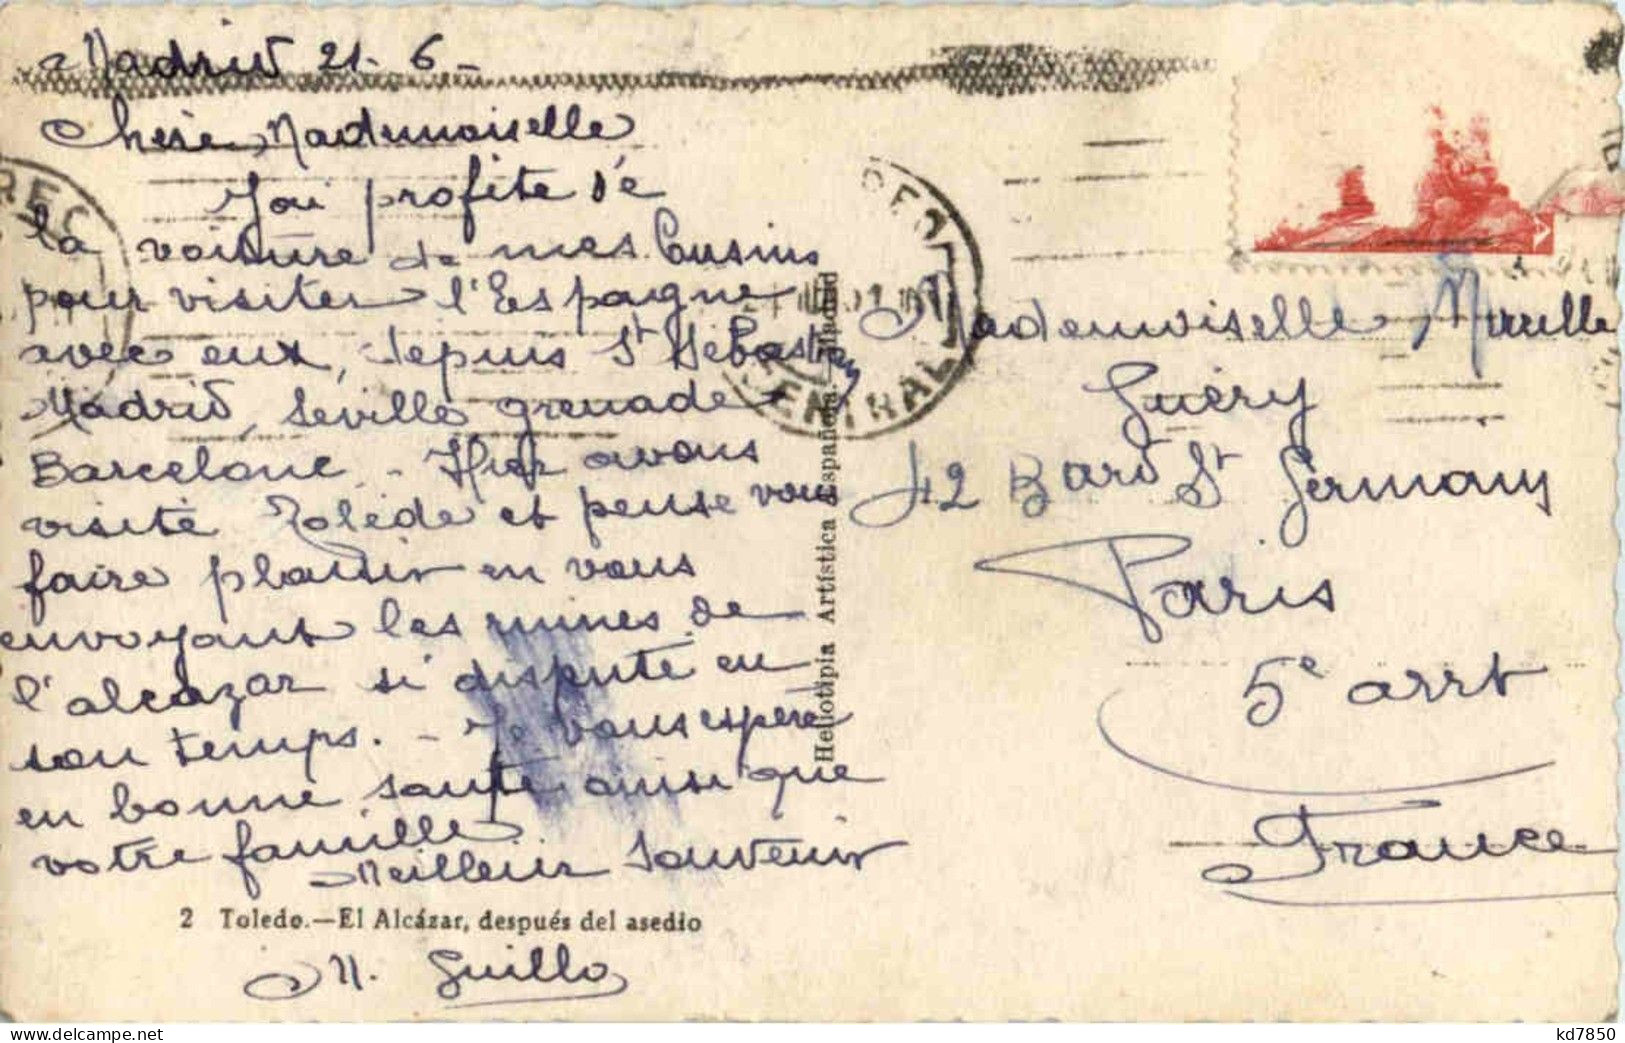 Madrid 21-6-
Chère Mademoiselle
J'ai profité dé
la voiture de mes Cusins
pour visiter l'Espagne
avec eux, depuis St Sébastian
Madrid, Séville grenade
Barcelone - Hier avons
visité Tolède et pense vous
faire plaisir en vous
envoyant les ruines de
l'alcazar si disputé en
son temps. - Je vous espère
en bonne santé ainsi que
votre famille
Meilleur Souvenir
2 Toledo.—El Alcázar, después del asedio
M. Guillo
Heliotipia Artística Española - Madrid
CENTRAL
Mademoiselle
Guéry
42 Bard St Germain
Paris
5e arrt
France
kd7850